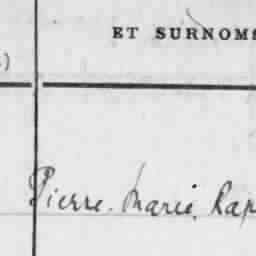 ET SURNOMS
)
Pierre. Marie. Rap